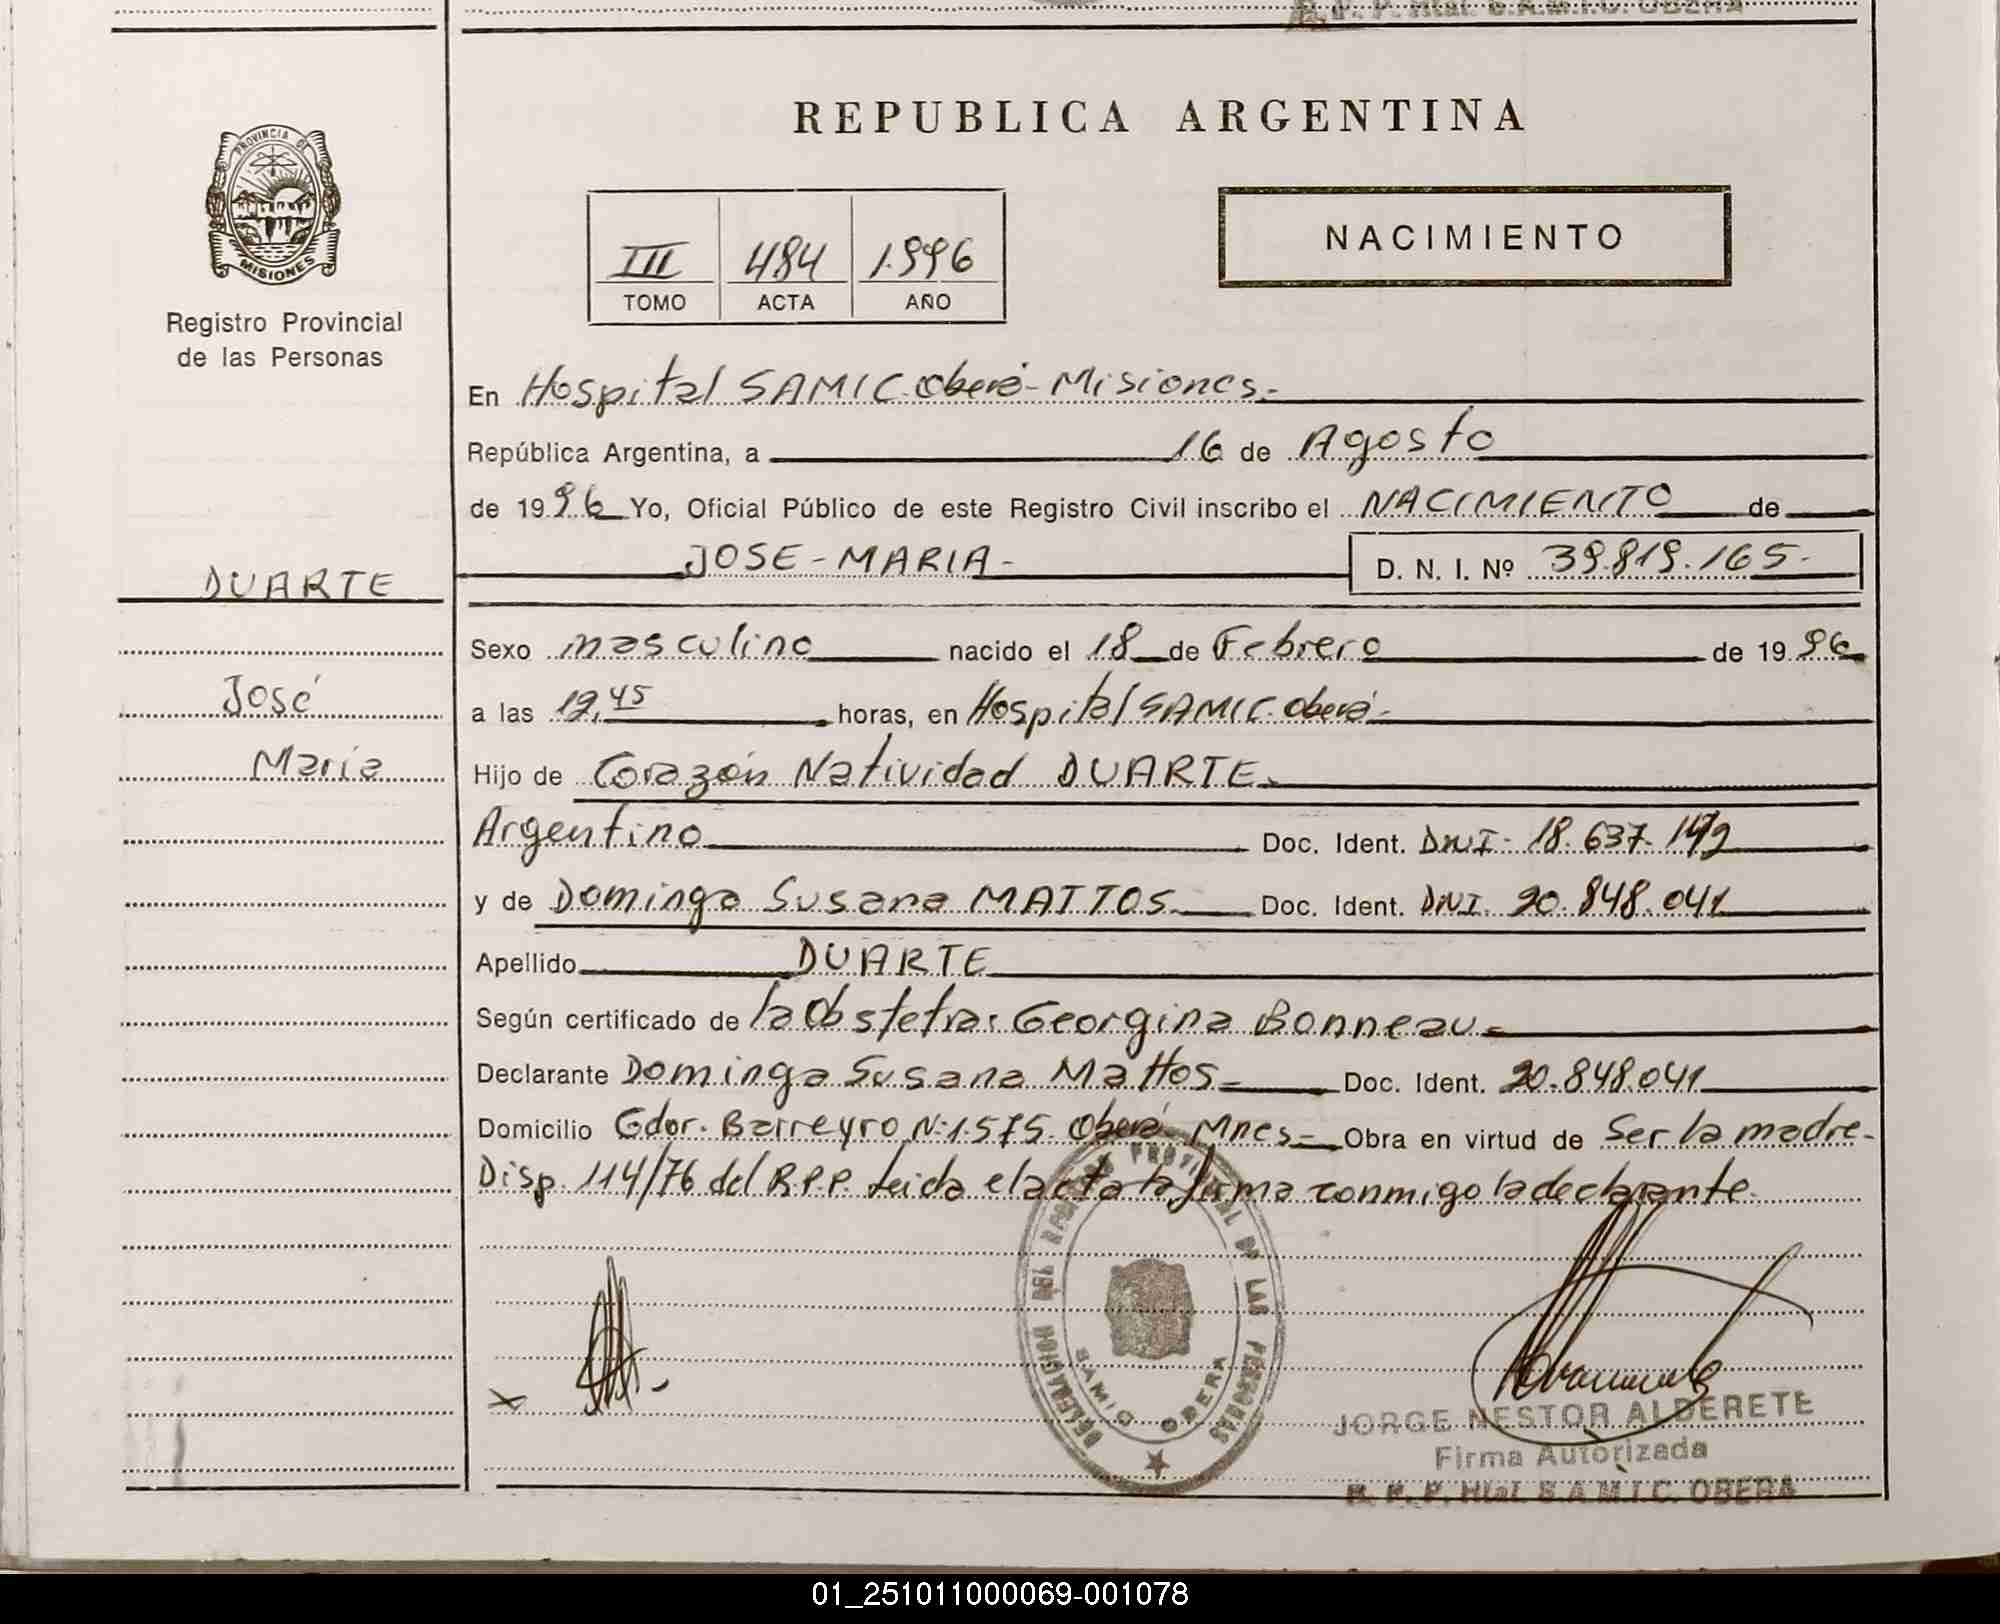 R. P. P. Htal. S.A.M.I.C. OBERA
PROVINCIA DE
MISIONES
Registro Provincial
de las Personas
REPUBLICA ARGENTINA
III 484 1.996
TOMO ACTA AÑO
NACIMIENTO
En Hospital SAMIC. Oberá - Misiones.-
República Argentina, a 16 de Agosto
de 1996 Yo, Oficial Público de este Registro Civil inscribo el NACIMIENTO de
JOSE - MARIA - D. N. I. Nº 39.819.165.-
DUARTE
José
María
Sexo masculino nacido el 18 de Febrero de 1996
a las 12,45 horas, en Hospital SAMIC. Oberá.-
Hijo de Corazón Natividad DUARTE.-
Argentino Doc. Ident. DNI. 18.637.142
y de Dominga Susana MATTOS. Doc. Ident. DNI. 20.848.041
Apellido DUARTE
Según certificado de la Obstetra: Georgina Bonneau.-
Declarante Dominga Susana Mattos.- Doc. Ident. 20.848.041
Domicilio Gdor. Barreyro N: 1.575. Oberá Mnes.- Obra en virtud de Ser la madre.-
Disp. 114/76 del R.P.P. Leida el acta la firma conmigo la declarante.
x
DELEGACION DEL REGISTRO PROVINCIAL DE LAS PERSONAS
SAMIC OBERA
JORGE NESTOR ALDERETE
Firma Autorizada
R. P. P. Htal. S.A.M.I.C. OBERA
01_251011000069-001078